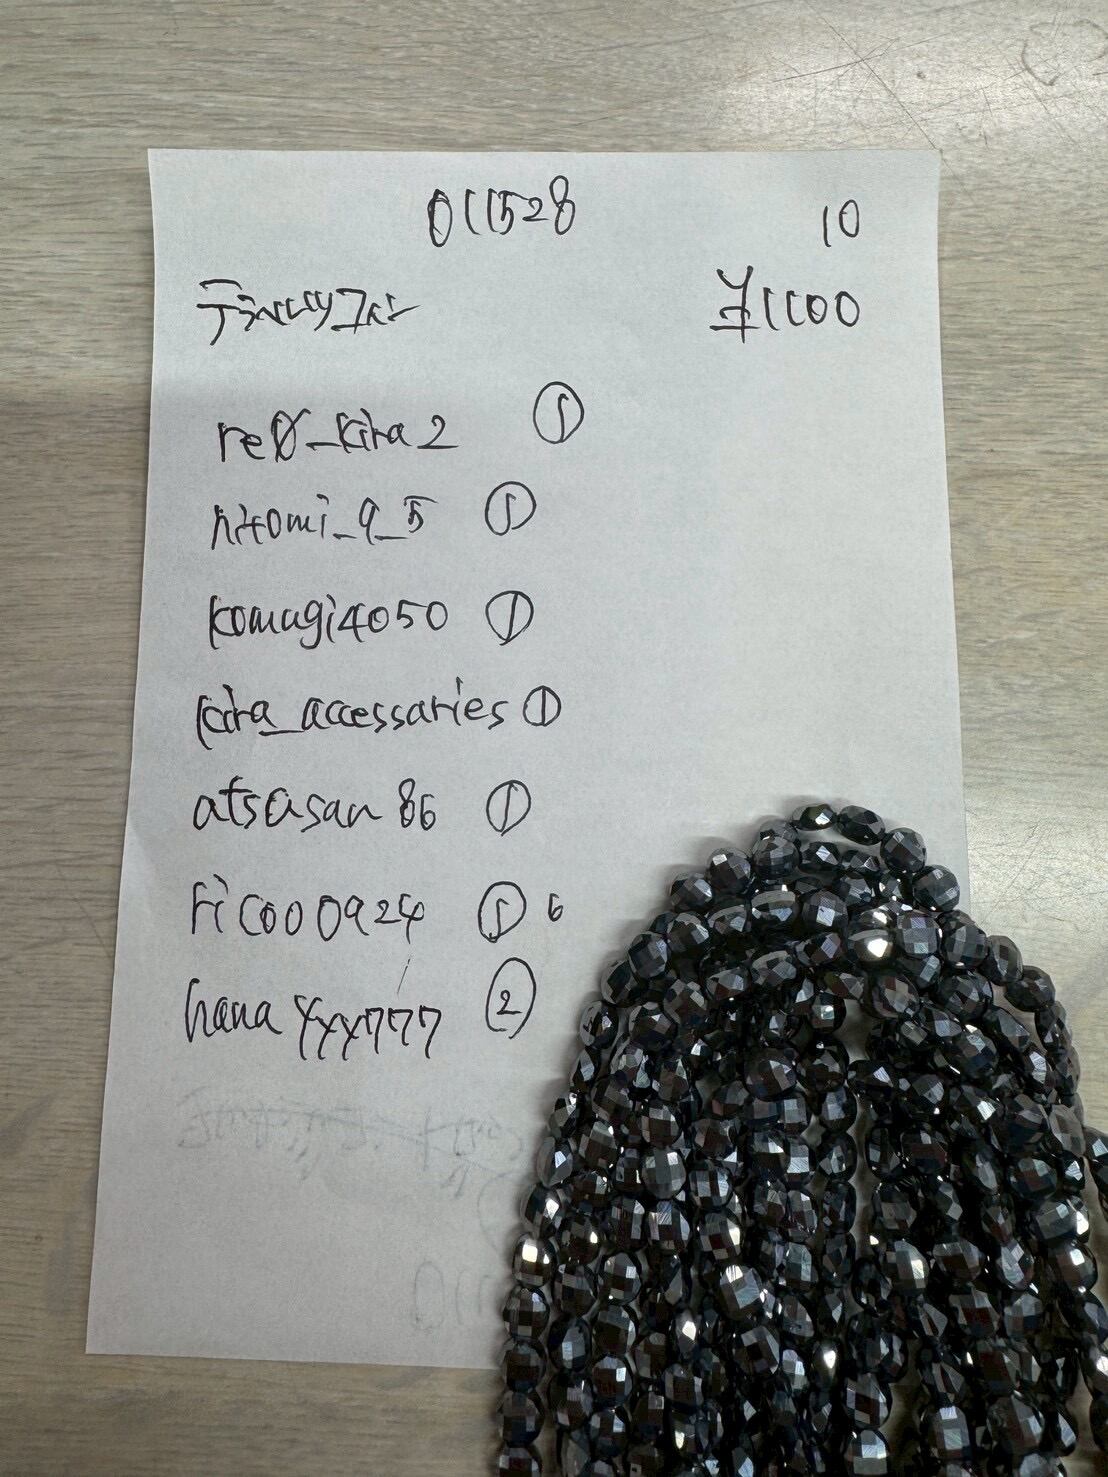 011528 10
テラヘルツコイン ¥1100
re0_kira2 ①
hitomi_9_5 ①
komugi4050 ①
kira_accessaries ①
atsasan86 ①
rico000924 ① 6
hanayyyy777 ②